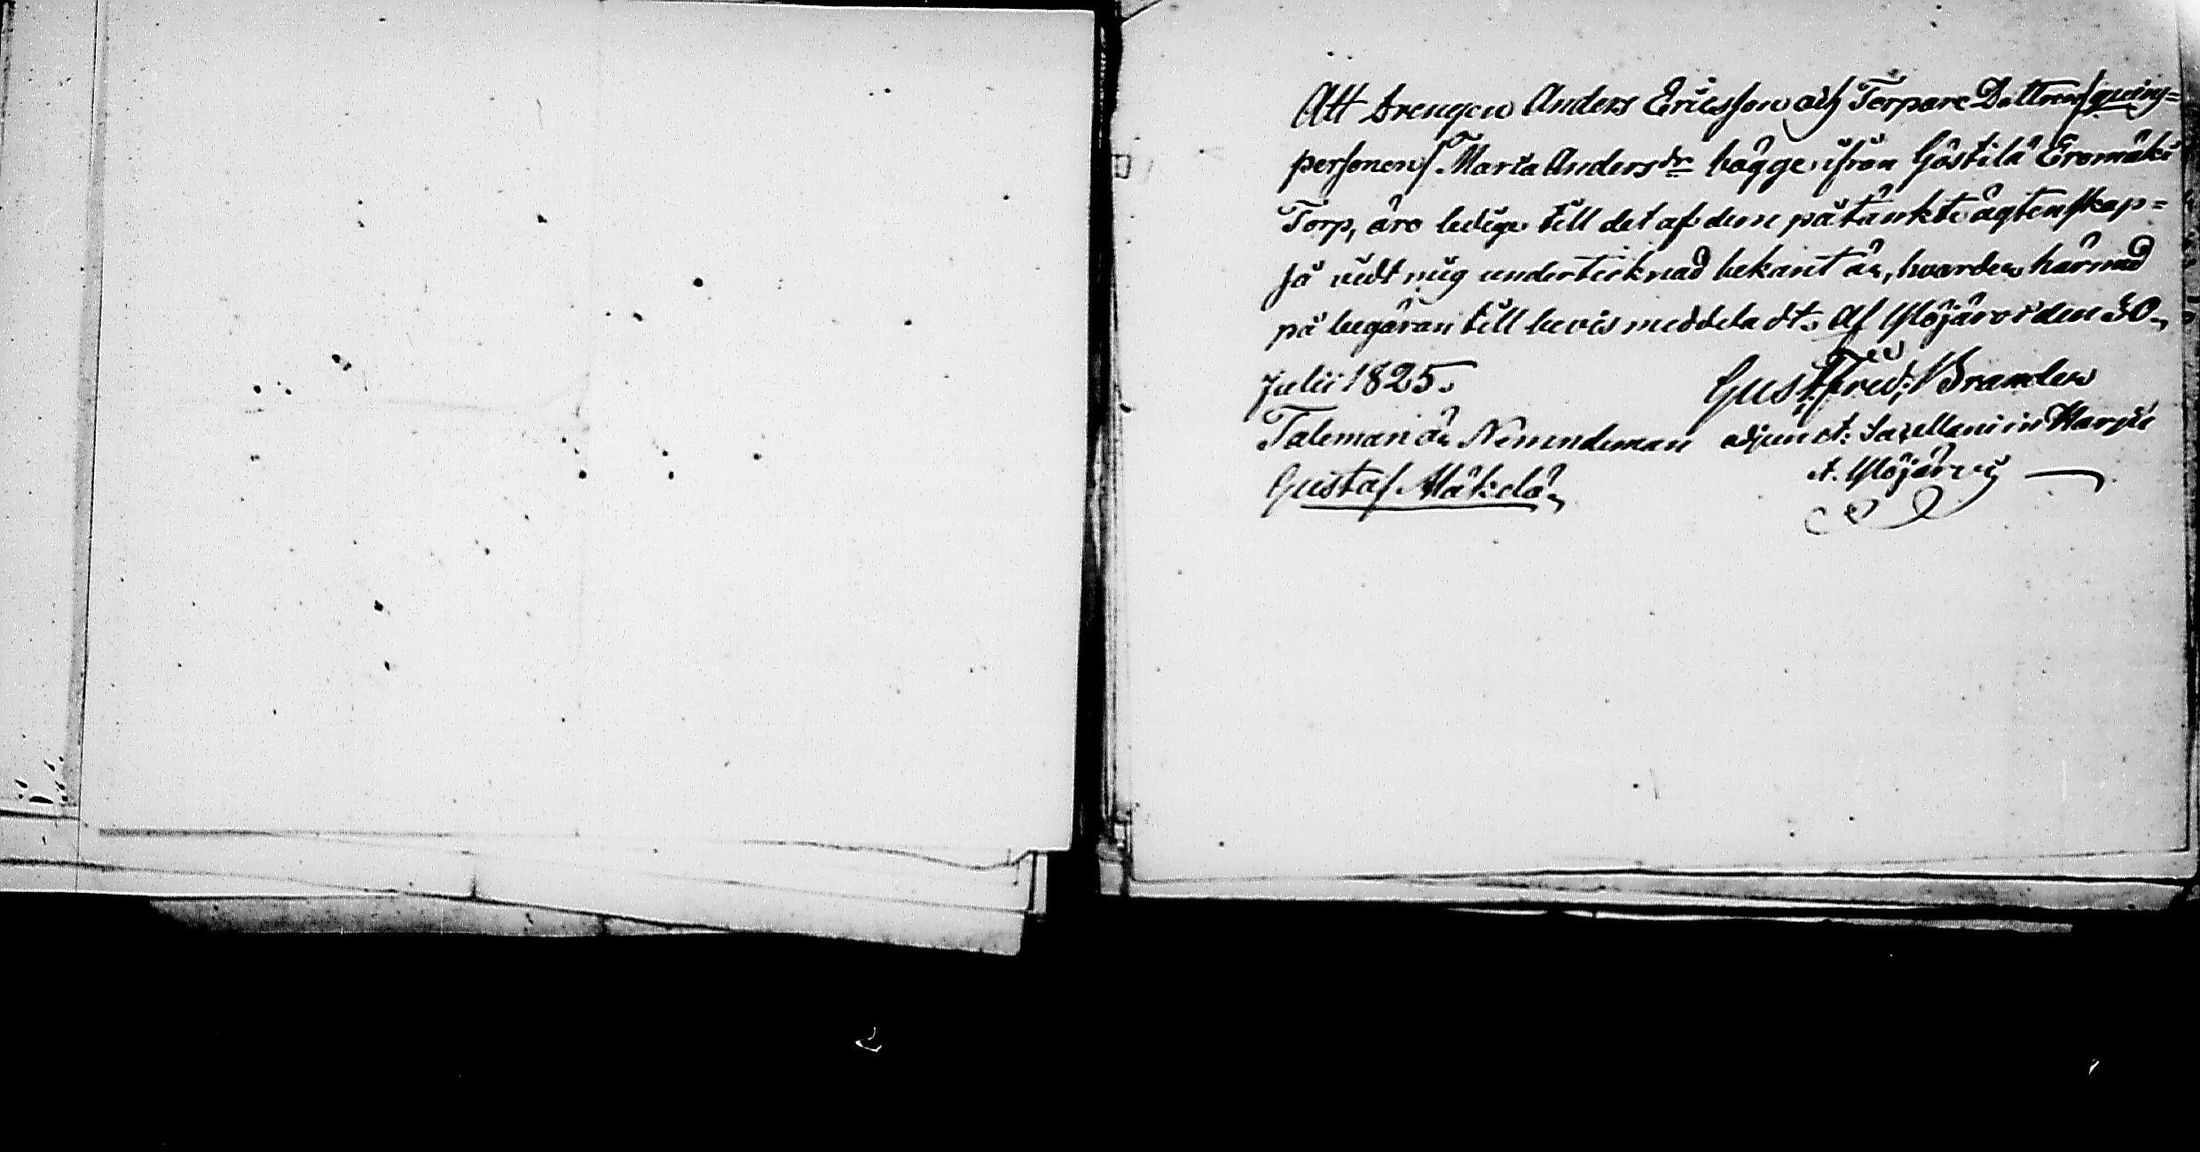 Att Drengen Anders Ericsson och Torpare Dottren /:qvins=
personen/ Maria Anders dr bägge ifrån Göstilä Eromäki
Torp, äro ledige till det af dem påtänkte ägtenskap=
så vidt mig underteknad bekant är, hvarder härmed
på begäran till bevis meddeladt. Af Ylöjärvi den 30
Julii 1825. Gust: Fred: Brander
Taleman är Nämndeman adjunct: Sacellani in Harju
Gustaf Mäkelä et Ylöjärvi